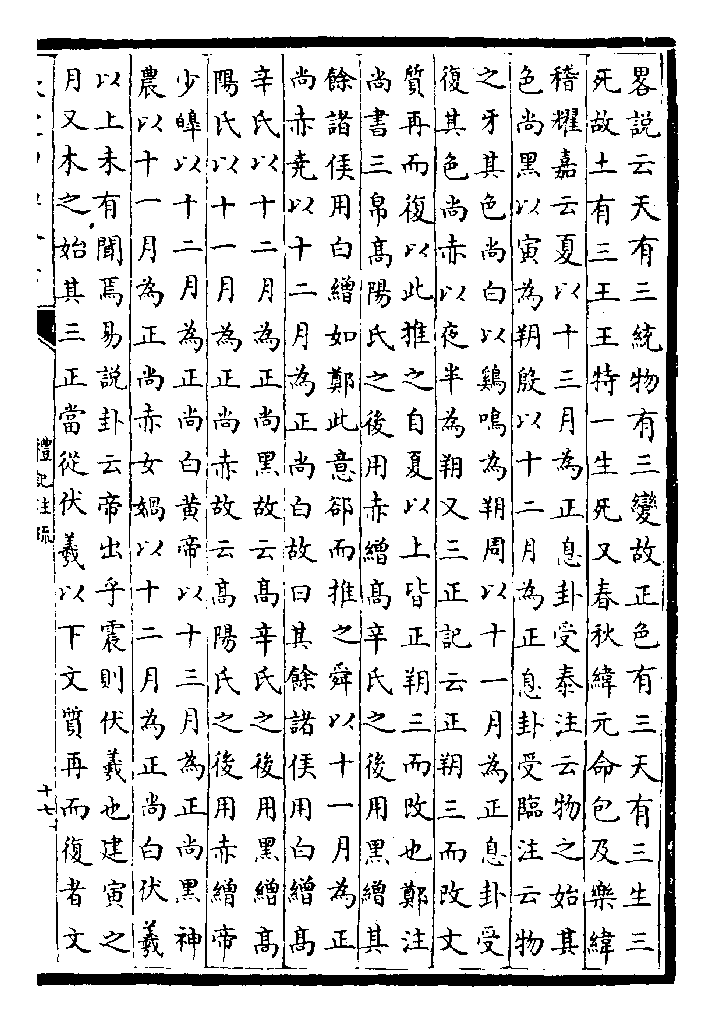 畧說云天有三統物有三變故正色有三天有三生三
死故土有三王王特一生死又春秋緯元命包及樂緯
稽耀嘉云夏以十三月為正息卦受泰注云物之始其
色尚黑以寅為朔殷以十二月為正息卦受臨注云物
之牙其色尚白以鷄鳴為朔周以十一月為正息卦受
復其色尚赤以夜半為朔又三正記云正朔三而改文
質再而復以此推之自夏以上皆正朔三而改也鄭注
尚書三帛高陽氏之後用赤繒高辛氏之後用黑繒其
餘諸侯用白繒如鄭此意卻而推之舜以十一月為正
尚赤堯以十二月為正尚白故曰其餘諸侯用白繒高
辛氏以十二月為正尚黑故云高辛氏之後用黑繒高
陽氏以十一月為正尚赤故云高陽氏之後用赤繒帝
少皞以十二月為正尚白黃帝以十三月為正尚黑神
農以十一月為正尚赤女媧以十二月為正尚白伏羲
以上未有聞焉易說卦云帝出乎震則伏羲也建寅之
月又木之始其三正當從伏羲以下文質再而復者文
禮記注疏
十七